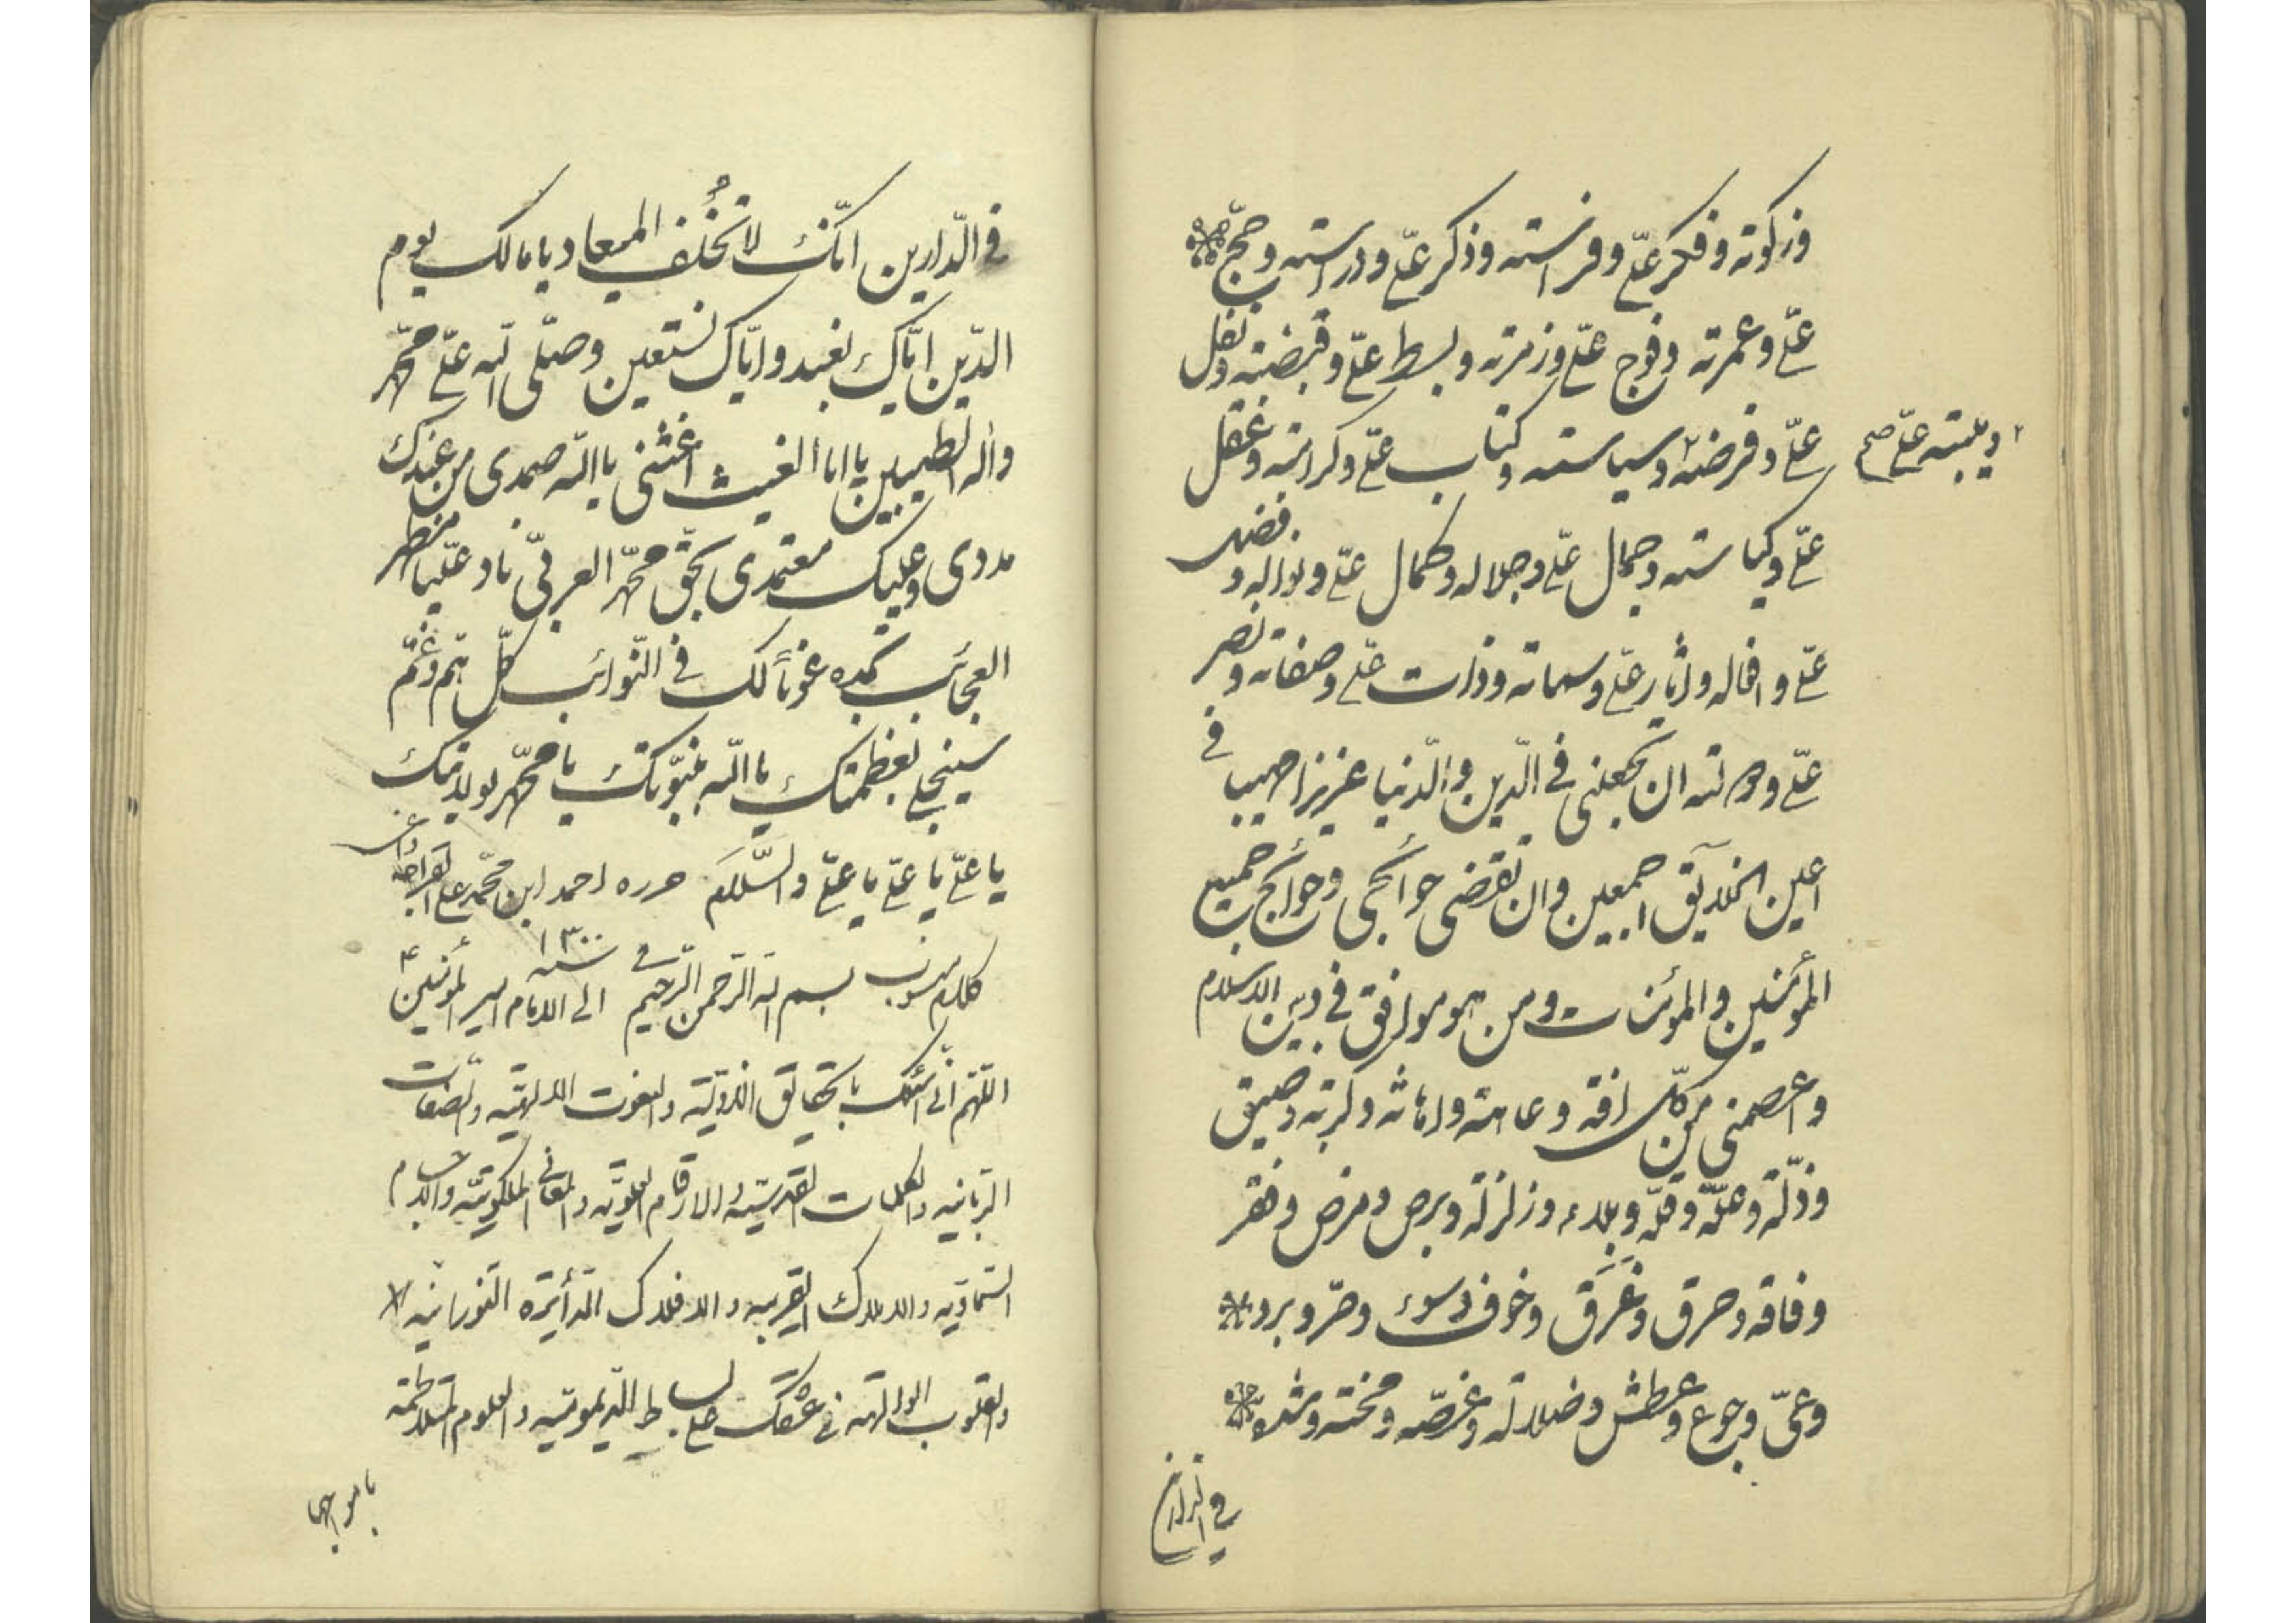 وزكوته وفكر علي وفراسته وذكر علي ودراسته وحج
علي وعمرته وفوج علي وزمرته وبسط علي وقبضته ونفل
علي وفرضه وسياسته وكتاب علي وكرامته وعقل
علي صح
علي وكياسته وجمال علي وجلاله وكمال علي ونواله وفضل
علي وافضاله واثار علي وسماته وذات علي وصفاته ونصر
علي وصولته ان تجعلني في الدين والدنيا عزيزا مهيبا في
اعين الخلايق اجمعين وان تقضى حوائجي وحوائج جميع
المؤمنين والمؤمنات ومن هو موافق في دين الاسلام
واعصمني من كل افة وعاهة واهانة وكربة وضيق
وذلّة وعلّة وقلّة وبلاء وزلزلة وبرص ومرض وفقر
وفاقه وحرق وغَرَق وخوف وسوء وحرّ وبرد
وعمى وجوع وعطش وضلالة وغصّه ومحنته وشدة
في الدارين
في الدّارين انّك لا تُخْلف الميعاد يا مالك يوم
الدّين ايّاك نعبد وايّاك نستعين وصلّى الله علي محمّد
واله الطيبين يا ابا الغيث اغثنى يا الله صمدى من عندك
مددى وعليك معتمدى بحق محمّد العربّي ناد عليّا مظهر
العجائب تجده عوناً لك في النّوائب كلّ همّ وغمّ
سينجلي بعظمتك يا الله بنبوّتك يا محمّد بولايتك
يا علي يا علي يا علي والسّلام حرره احمد ابن محمد علي القراجه داغي
سنه ١٣٠٠
كلام منسوب بسم الله الرّحمن الرّحيم الى الامام امير المؤمنين ع
اللّهمّ انّي اسئلك بالحقايق الازوليّة والنعوت اللاهوتيّه والصفات
الربّانيه والكلمات القدسيّه والارقام العلويّه والمعاني الملكوتيّه والاجسام
السّماويّه والاملاك القريبه والافلاك الدّائرة النّورانيه
والقلوب الوالهة في عشقك علي بساط الدّيموميّه والعلوم المتلاطمة
بامواجها